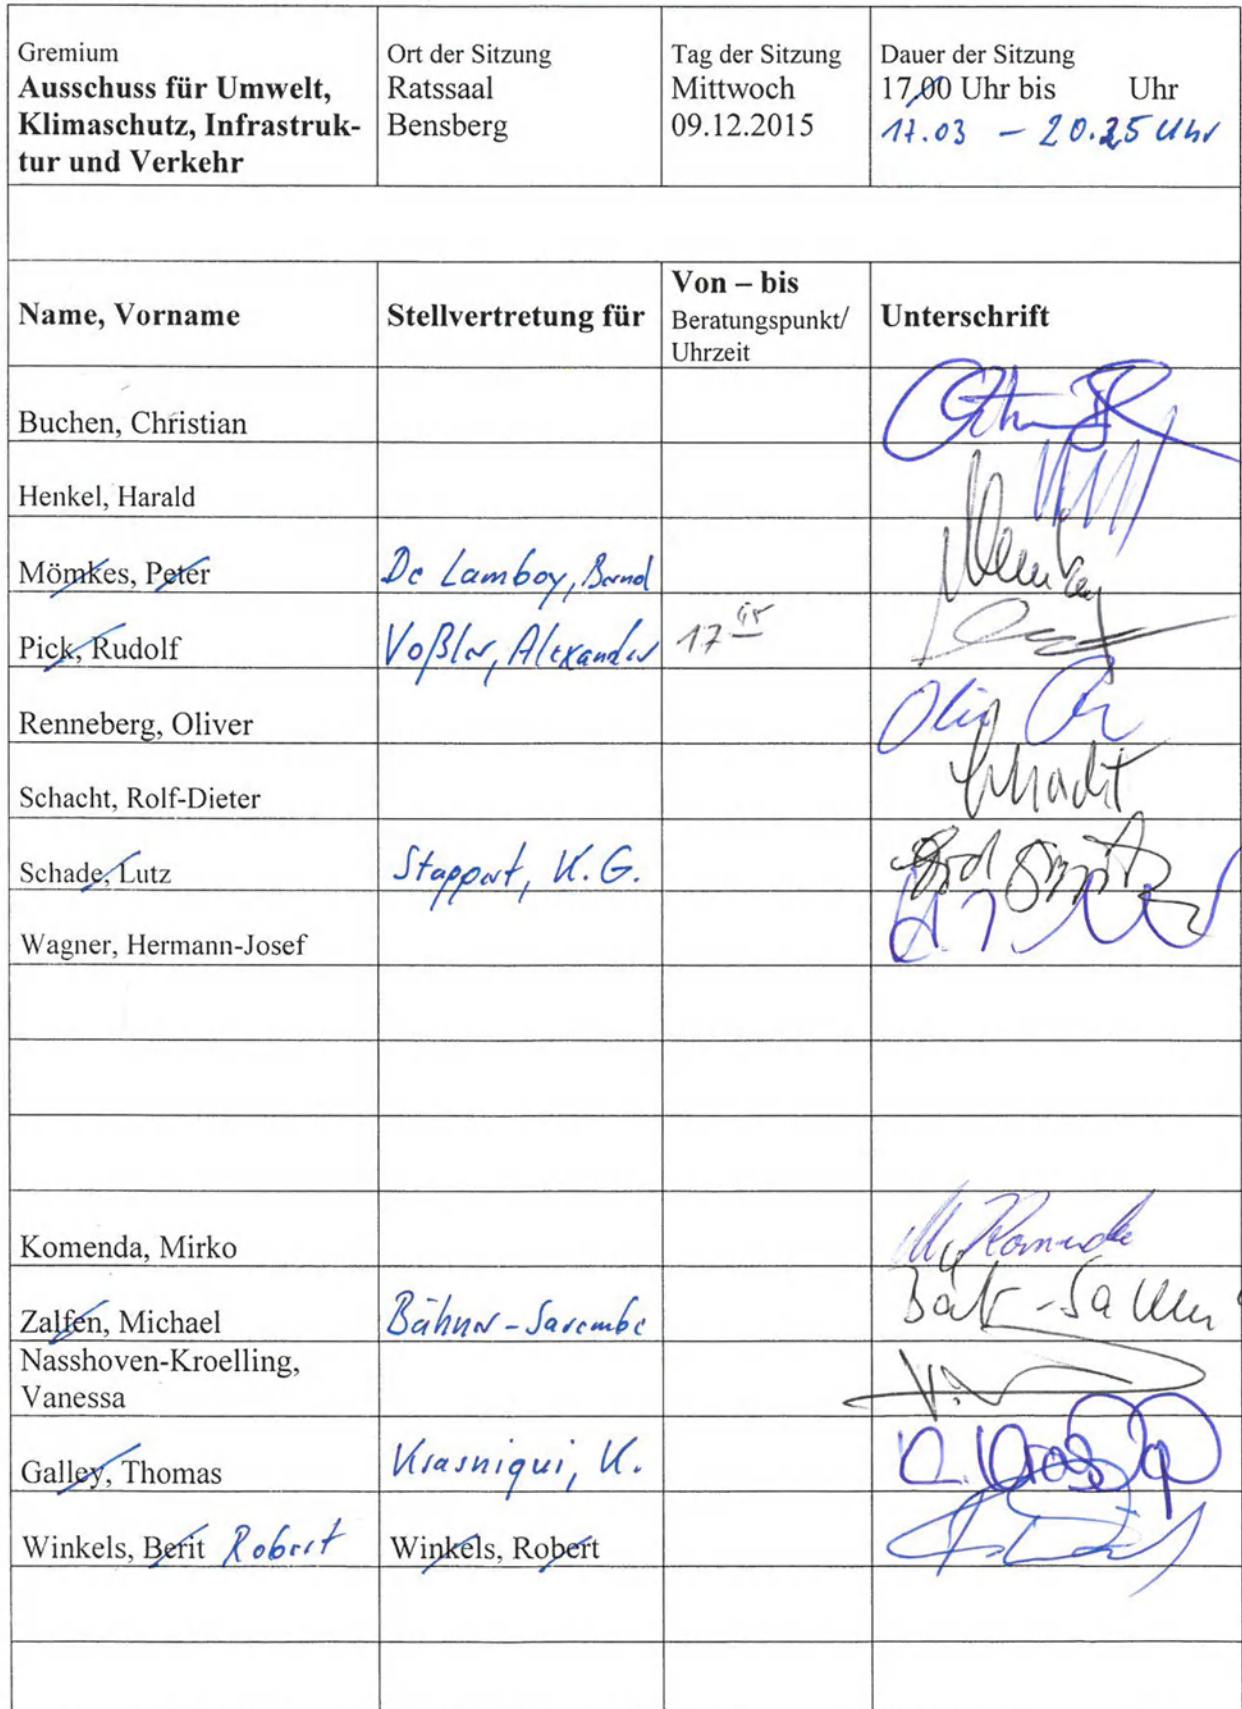 Gremium
Ausschuss für Umwelt,
Klimaschutz, Infrastruk-
tur und Verkehr
Ort der Sitzung
Ratssaal
Bensberg
Tag der Sitzung
Mittwoch
09.12.2015
Dauer der Sitzung
17.00 Uhr bis Uhr
17.03 – 20.25 Uhr
Name, Vorname
Stellvertretung für
Von – bis
Beratungspunkt/
Uhrzeit
Unterschrift
Buchen, Christian
Henkel, Harald
Mömkes, Peter De Lamboy, Bernd
Pick, Rudolf Voßler, Alexander 17
Renneberg, Oliver
Schacht, Rolf-Dieter Schacht
Schade, Lutz Stappert, K.G.
Wagner, Hermann-Josef
Komenda, Mirko M. Komenda
Zalfen, Michael Bähner-Sarembe
Nasshoven-Kroelling,
Vanessa
Galley, Thomas Krasniqui, K.
Winkels, Berit Robert Winkels, Robert